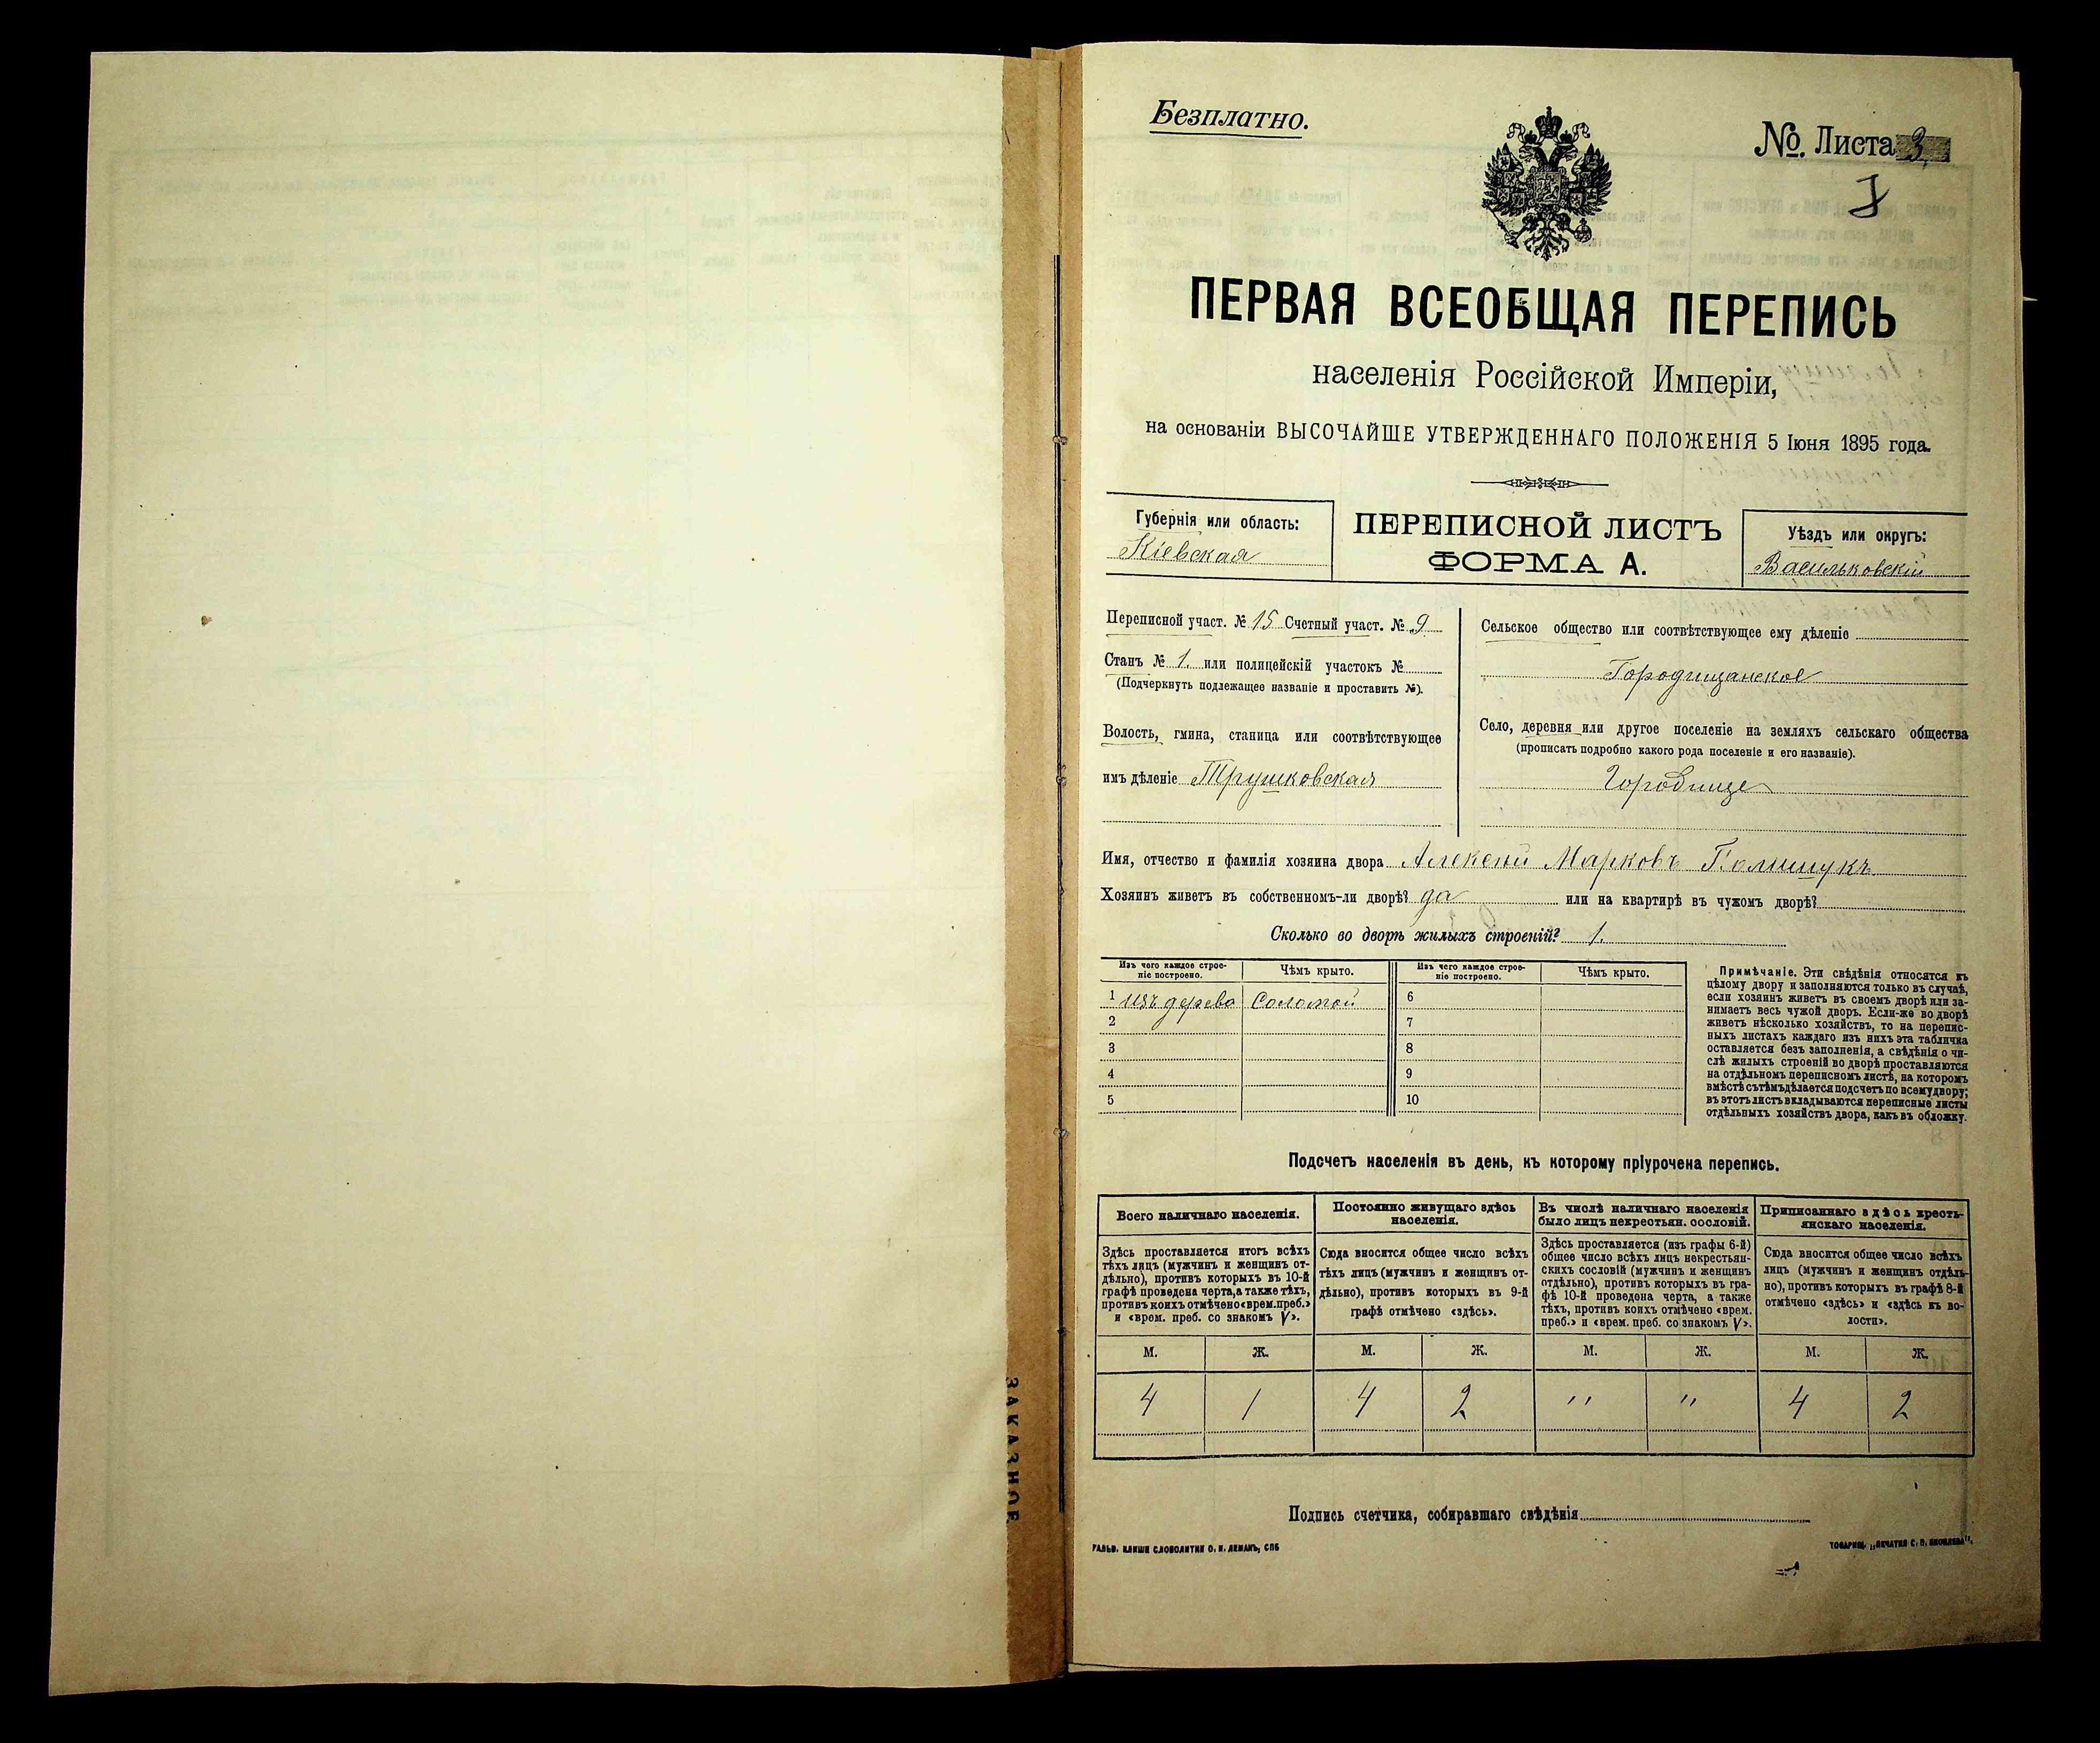 Безплатно.
№. Листа 3.
ПЕРВАЯ ВСЕОБЩАЯ ПЕРЕПИСЬ
населенія Россійской Имперіи,
на основаніи ВЫСОЧАЙШЕ УТВЕРЖДЕННАГО ПОЛОЖЕНІЯ 5 Іюня 1895 года.
Губернія или область:
Кіевская
ПЕРЕПИСНОЙ ЛИСТЪ
ФОРМА А.
Уѣздъ или округъ:
Васильковскій
Переписной участ. № 15 Счетный участ. № 9
Станъ № 1. или полицейскій участокъ №
(Подчеркнуть подлежащее названіе и проставить №).
Волость, гмина, станица или соотвѣтствующее
имъ дѣленіе Трушковская
Сельское общество или соотвѣтствующее ему дѣленіе
Городищанское
Село, деревня или другое поселеніе на земляхъ сельскаго общества
(прописать подробно какого рода поселеніе и его названіе).
Городище
Имя, отчество и фамилія хозяина двора Алексей Марковъ
Хозяинъ живетъ въ собственномъ-ли дворѣ? да или на квартирѣ въ чужомъ дворѣ?
Сколько во дворѣ жилыхъ строеній? 1.
Изъ чего каждое строе-
ніе построено.
Чѣмъ крыто.
Изъ чего каждое строе-
ніе построено.
Чѣмъ крыто.
1 изъ дерева Соломой 6
2 7
3 8
4 9
5 10
Примѣчаніе. Эти свѣдѣнія относятся къ
цѣлому двору и заполняются только въ случаѣ,
если хозяинъ живетъ въ своемъ дворѣ или за-
нимаетъ весь чужой дворъ. Если-же во дворѣ
живетъ нѣсколько хозяйствъ, то на перепис-
ныхъ листахъ каждаго изъ нихъ эта табличка
оставляется безъ заполненія, а свѣдѣнія о чи-
слѣ жилыхъ строеній во дворѣ проставляются
на отдѣльномъ переписномъ листѣ, на которомъ
вмѣстѣ съ тѣмъ дѣлается подсчетъ по всему двору;
въ этотъ листъ вкладываются переписные листы
отдѣльныхъ хозяйствъ двора, какъ въ обложку.
Подсчетъ населенія въ день, къ которому пріурочена перепись.
Всего наличнаго населенія.
Здѣсь проставляется итогъ всѣхъ
тѣхъ лицъ (мужчинъ и женщинъ от-
дѣльно), противъ которыхъ въ 10-й
графѣ проведена черта, а также тѣхъ,
противъ коихъ отмѣчено «врем. преб.»
и «врем. преб. со знакомъ V».
Постоянно живущаго здѣсь
населенія.
Сюда вносится общее число всѣхъ
тѣхъ лицъ (мужчинъ и женщинъ от-
дѣльно), противъ которыхъ въ 9-й
графѣ отмѣчено «здѣсь».
Въ числѣ наличнаго населенія
было лицъ некрестьян. сословій.
Здѣсь проставляется (изъ графы 6-й)
общее число всѣхъ лицъ некрестьян-
скихъ сословій (мужчинъ и женщинъ
отдѣльно), противъ которыхъ въ гра-
фѣ 10-й проведена черта, а также
тѣхъ, противъ коихъ отмѣчено «врем.
преб.» и «врем. преб. со знакомъ V».
Приписаннаго здѣсь кресть-
янскаго населенія.
Сюда вносится общее число всѣхъ
лицъ (мужчинъ и женщинъ отдѣль-
но), противъ которыхъ въ графѣ 8-й
отмѣчено «здѣсь» и «здѣсь къ во-
лости».
М. Ж. М. Ж. М. Ж. М. Ж.
4 1 4 2 " " 4 2
Подпись счетчика, собиравшаго свѣдѣнія
ГАЛЬВ. КЛИШЕ СЛОВОЛИТНИ О. И. ЛЕМАНЪ, СПБ
ТОВАРИЩ. „ПЕЧАТНЯ С. П. ЯКОВЛЕВА".
ЗАКАЗНОЕ